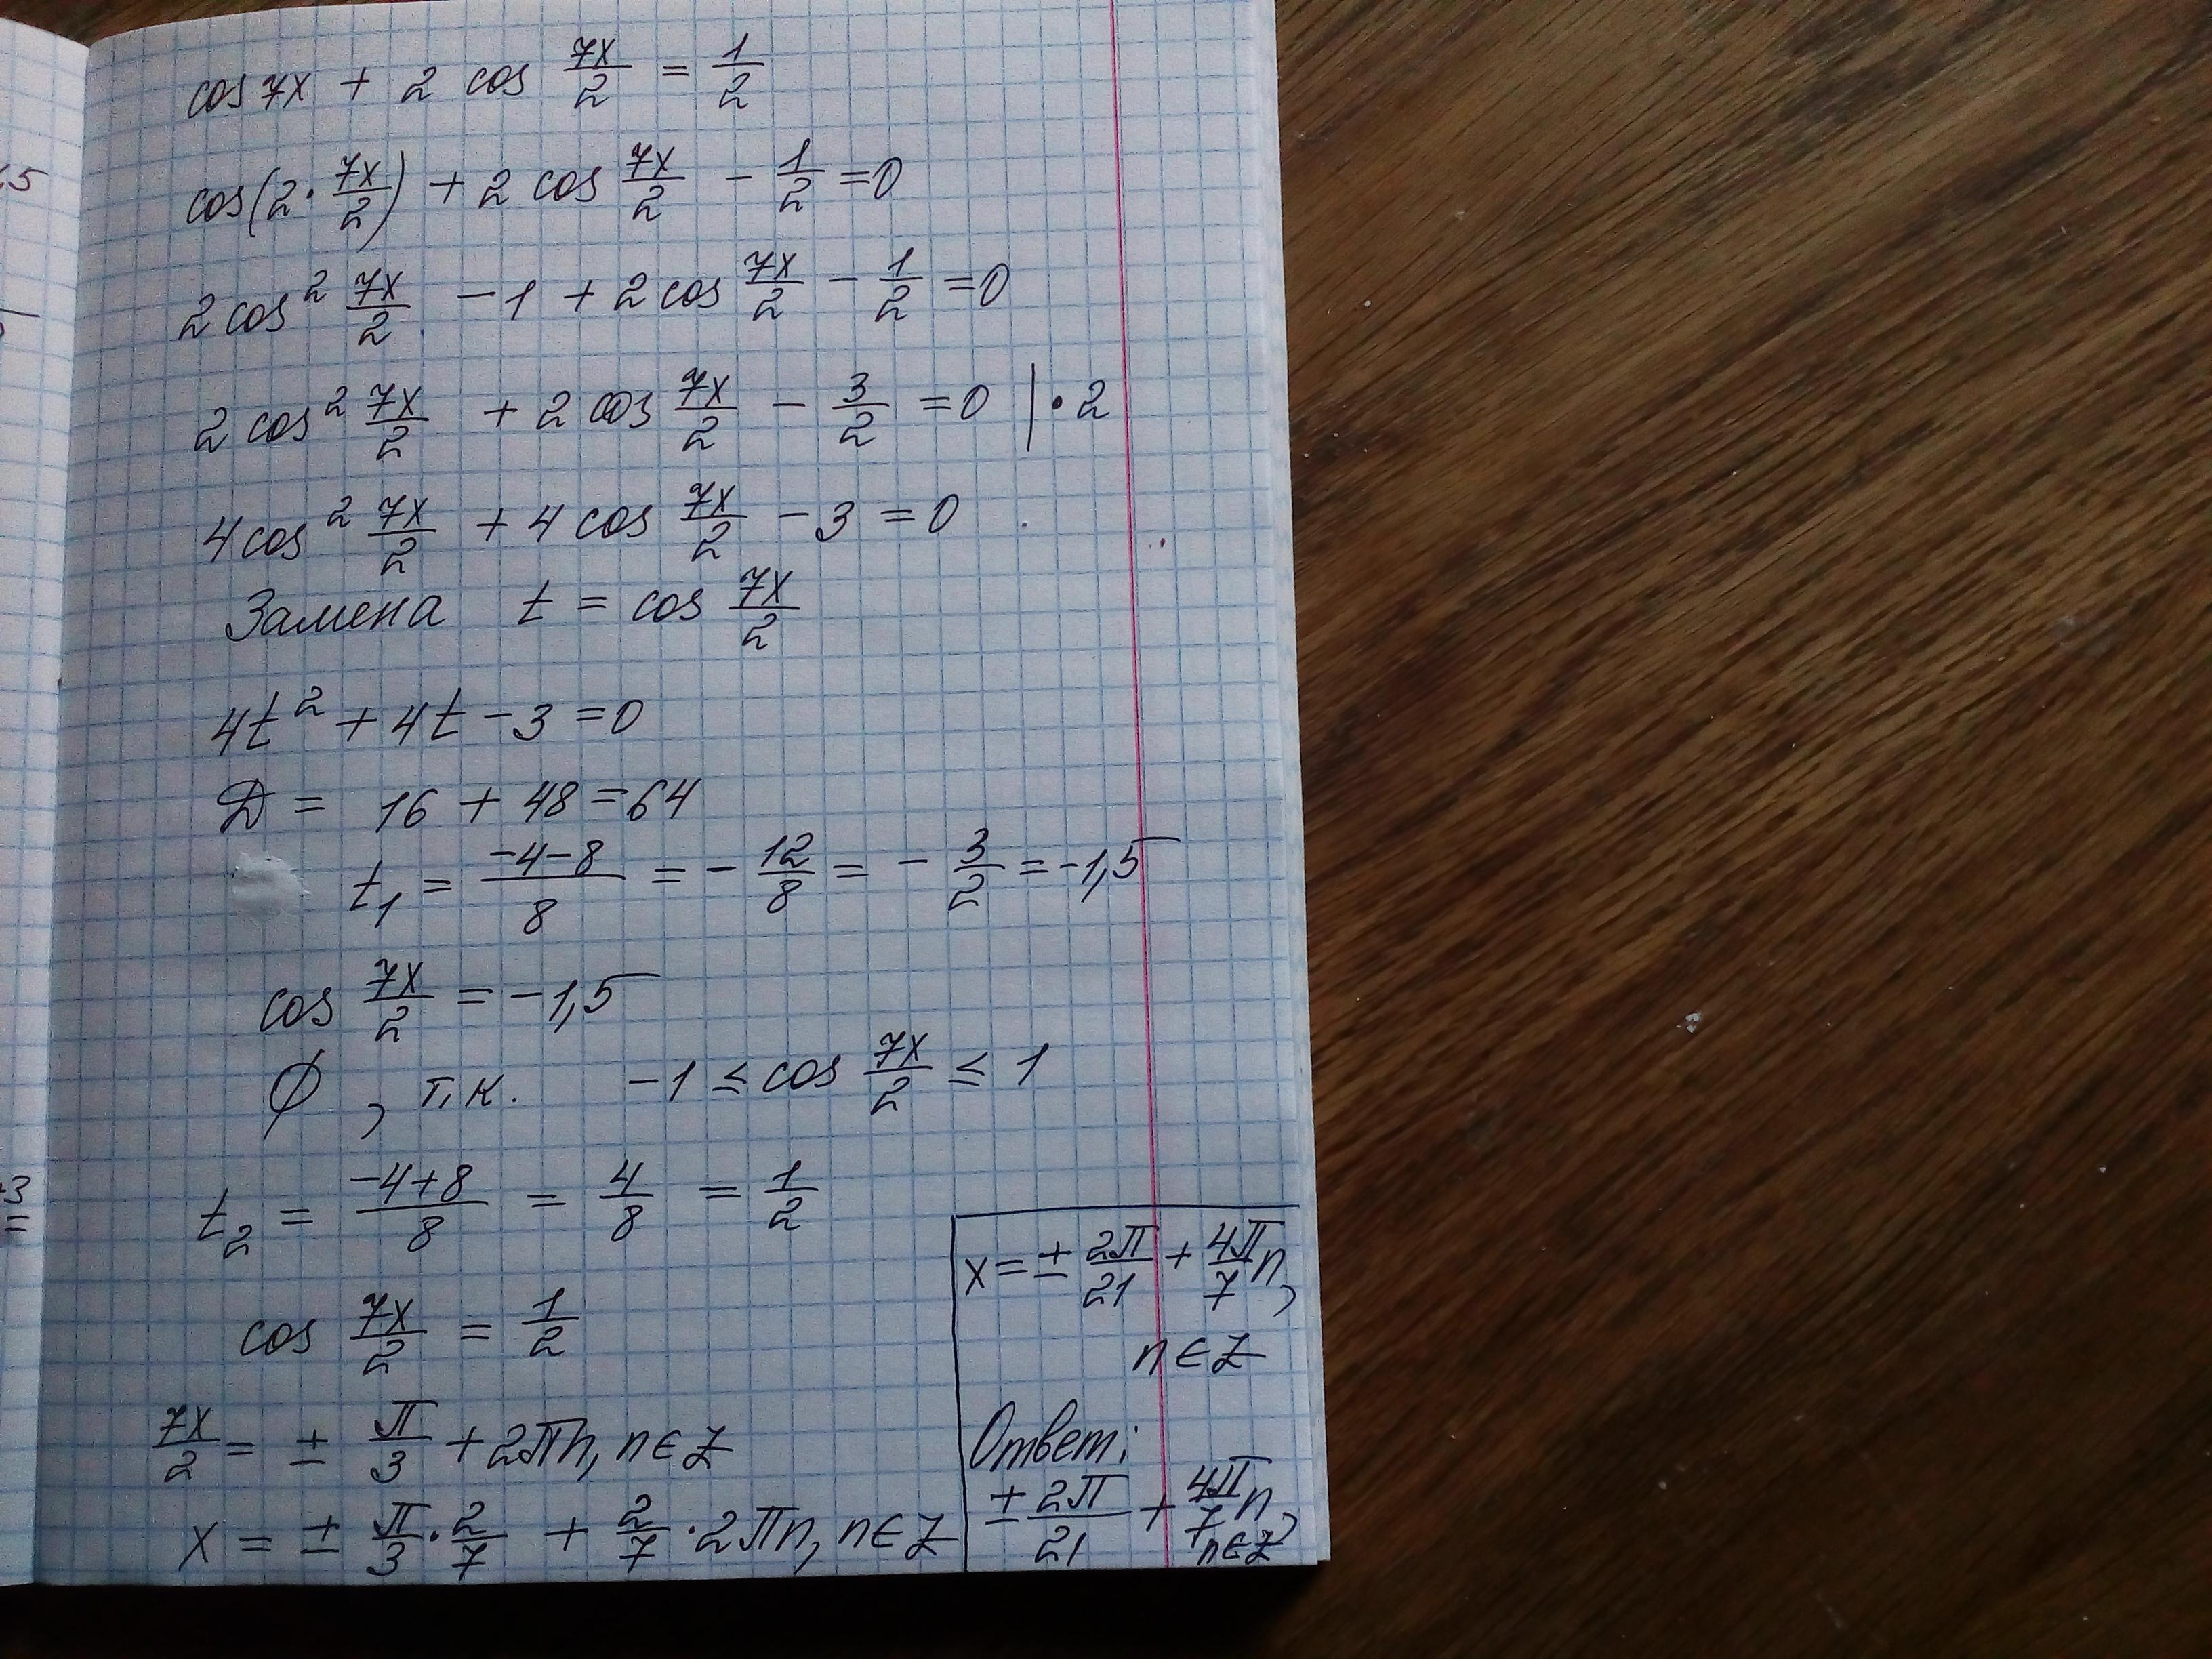 cos 7x + 2 cos 7x/2 = 1/2
cos(2 · 7x/2) + 2 cos 7x/2 − 1/2 = 0
2 cos² 7x/2 − 1 + 2 cos 7x/2 − 1/2 = 0
2 cos² 7x/2 + 2 cos 7x/2 − 3/2 = 0 | · 2
4 cos² 7x/2 + 4 cos 7x/2 − 3 = 0
Замена t = cos 7x/2
4t² + 4t − 3 = 0
Д = 16 + 48 = 64
t₁ = (−4−8)/8 = − 12/8 = − 3/2 = −1,5
cos 7x/2 = −1,5
∅, т.к. −1 ≤ cos 7x/2 ≤ 1
t₂ = (−4+8)/8 = 4/8 = 1/2
cos 7x/2 = 1/2
7x/2 = ± π/3 + 2πn, n∈Z
x = ± π/3 · 2/7 + 2/7 · 2πn, n∈Z
x = ± 2π/21 + 4π/7 n,
n∈Z
Ответ:
± 2π/21 + 4π/7 n,
n∈Z
,5
+3
=